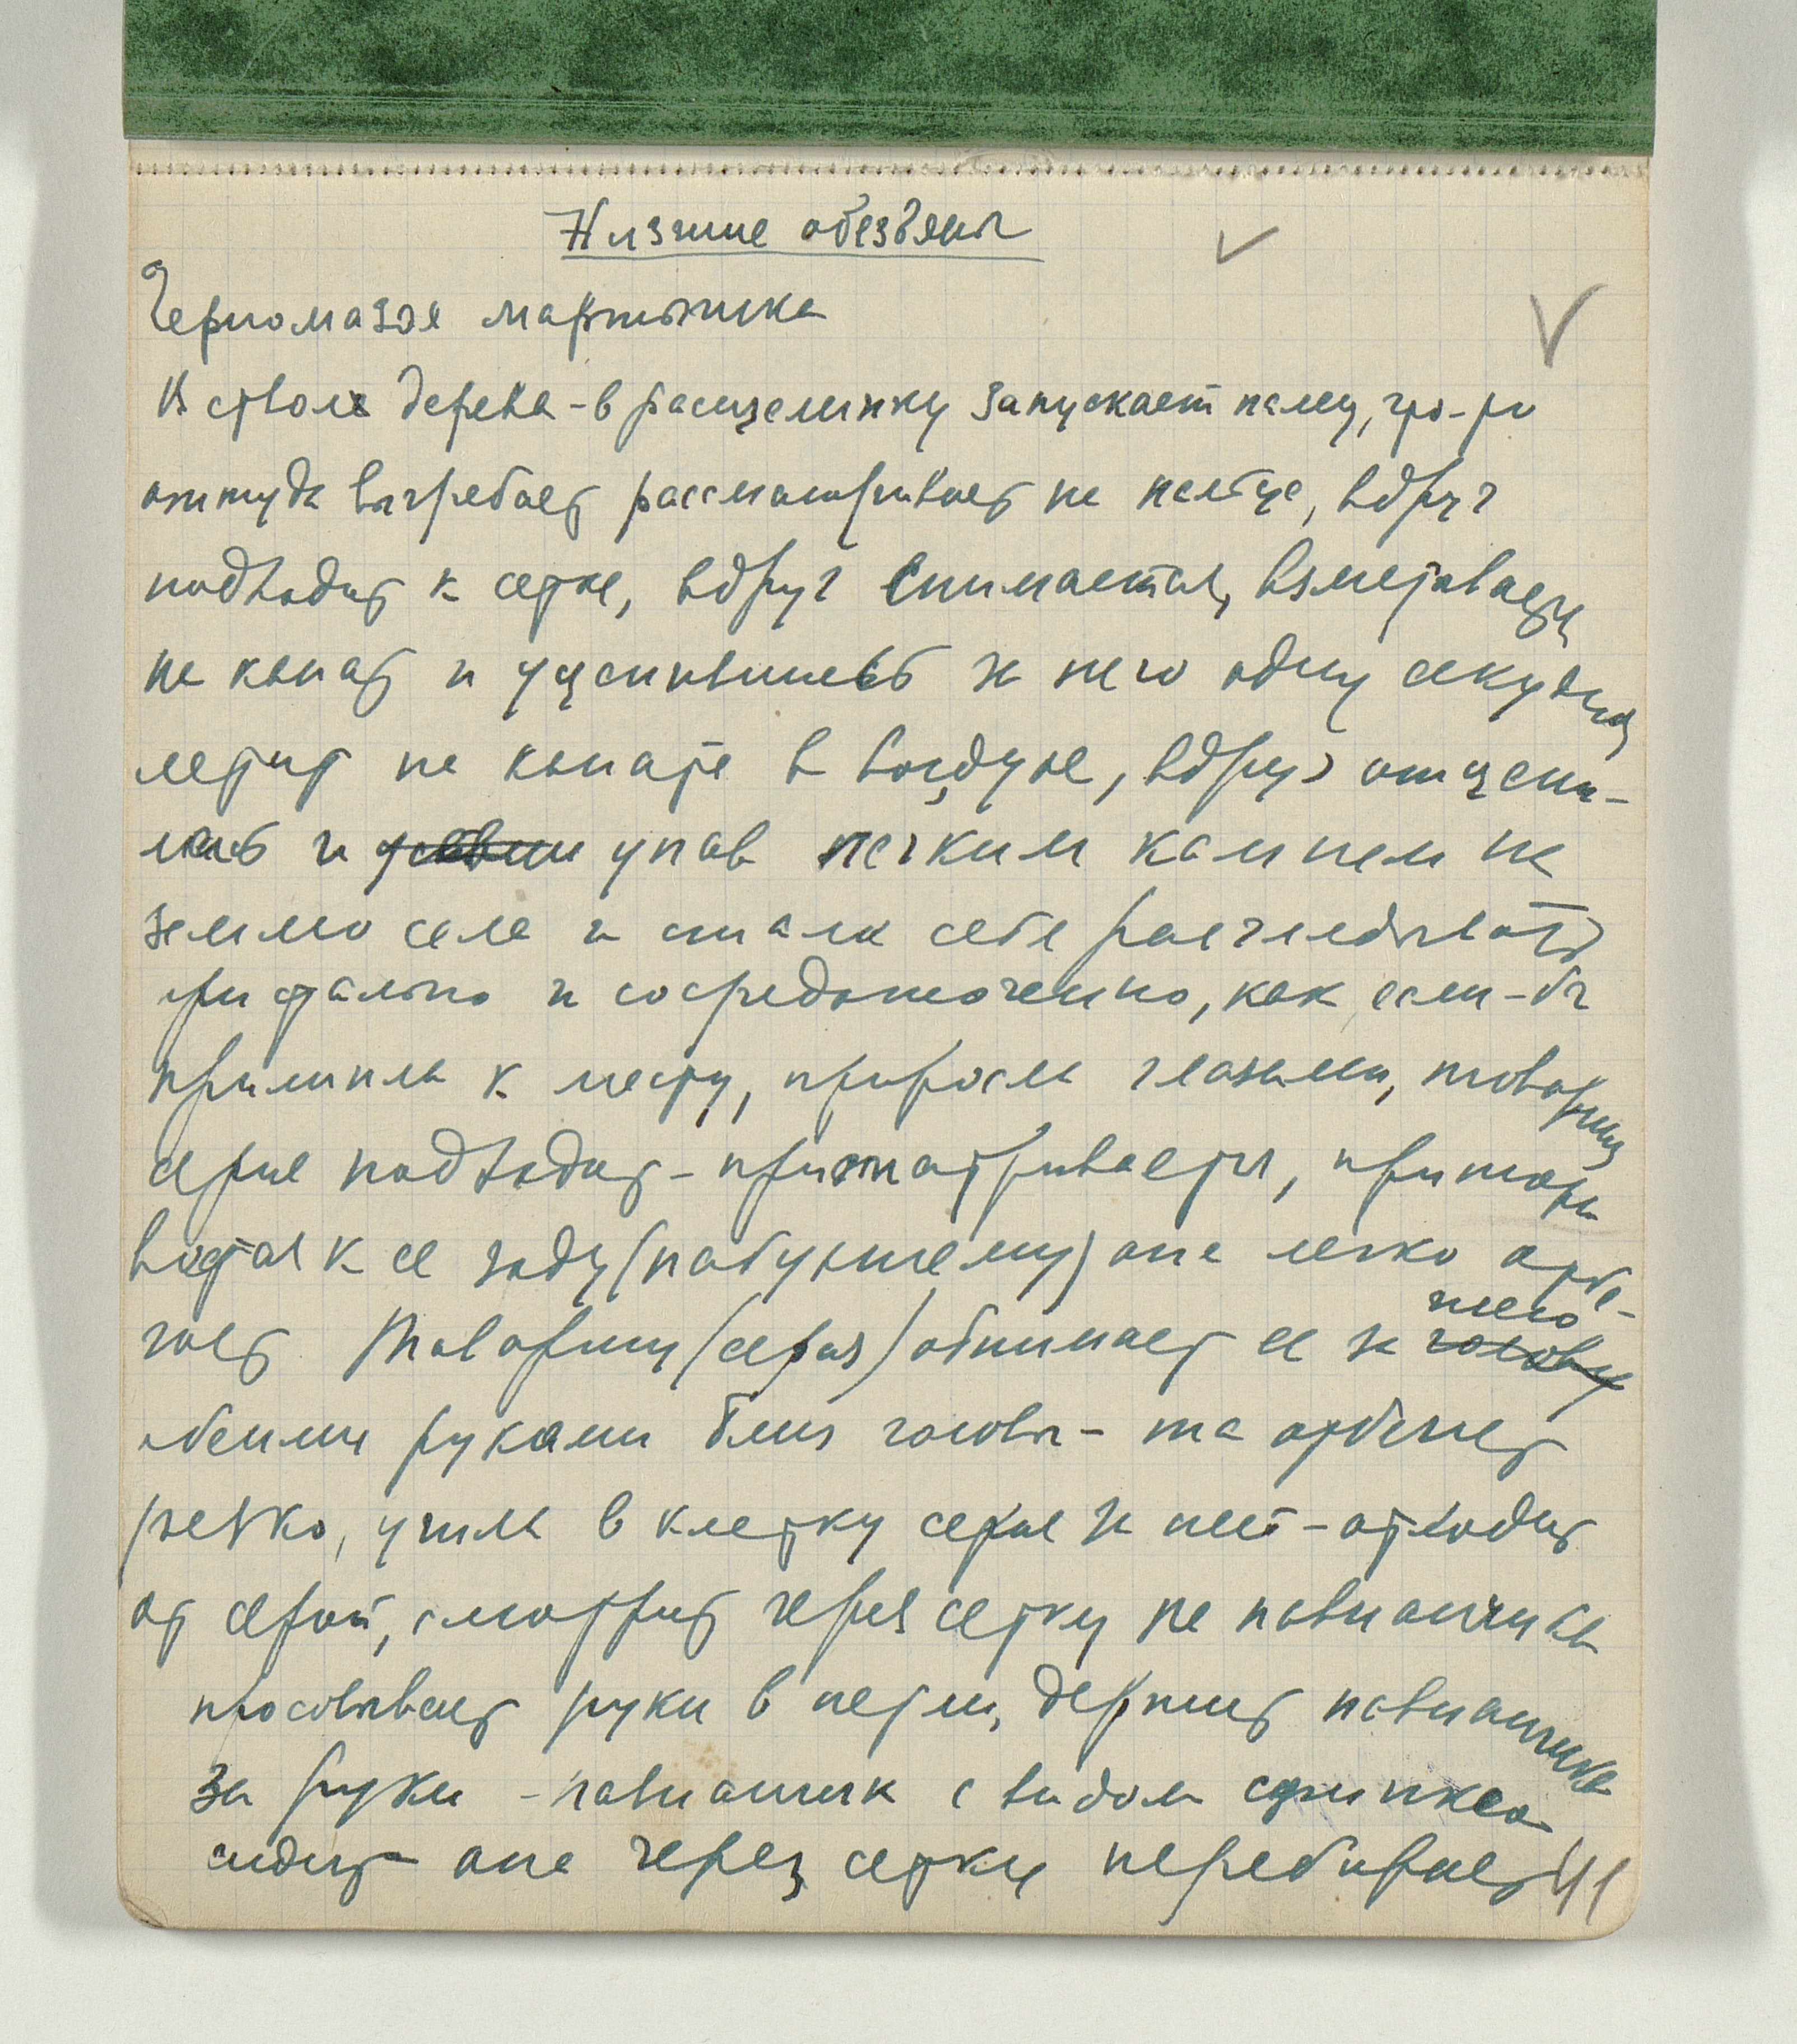 Низшие обезьяны
Черномазая мартышка
В стволе дерева - в расщелинку запускает палец, что-то
оттуда выгребает рассматривает на пальце, вдруг
подходит к сетке, вдруг снимается, взметывается
на канат и уцепившись за него одну секунду
летит на канате в воздухе, вдруг отцепи-
лась и упав легким камнем на
землю села и стала себя разглядывать
пристально и сосредоточенно, как если-бы
прилипла к месту, приросла глазами, товарищ
серые подходит - присматривается, притом
к ее заду (набухшему) она легко отбе-
гает Товарищ (серая) обнимает ее за голову тело
обеими руками близ головы - та отбегает
резко, ушла в клетку серые за ней - отходит
от серой, смотрит через сетку на павианчика
просовывает руки в петли, держит павианчика
за руки - павианчик с видом
сидит она через сетку перебирает
41